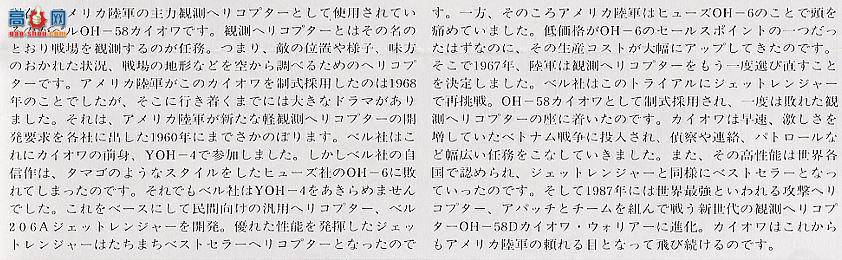 メリカ陸軍の主力観測ヘリコプターとして使用されてい
ルOH－58カイオワです。観測ヘリコプターとはその名の
とおり戦場を観測するのが任務。つまり、敵の位置や様子、味方
のおかれた状況、戦場の地形などを空から調べるためのヘリコプ
ターです。アメリカ陸軍がこのカイオワを制式採用したのは1968
年のことでしたが、そこに行き着くまでには大きなドラマがあり
ました。それは、アメリカ陸軍が新たな軽観測ヘリコプターの開
発要求を各社に出した1960年にまでさかのぼります。ベル社はこ
れにカイオワの前身、YOH－4で参加しました。しかしベル社の自
信作は、タマゴのようなスタイルをしたヒューズ社のOH－6に敗
れてしまったのです。それでもベル社はYOH－4をあきらめません
でした。これをベースにして民間向けの汎用ヘリコプター、ベル
206Aジェットレンジャーを開発。優れた性能を発揮したジェッ
トレンジャーはたちまちベストセラーヘリコプターとなったので
す。一方、そのころアメリカ陸軍はヒューズOH－6のことで頭を
痛めていました。低価格がOH－6のセールスポイントの一つだっ
たはずなのに、その生産コストが大幅にアップしてきたのです。
そこで1967年、陸軍は観測ヘリコプターをもう一度選び直すこと
を決定しました。ベル社はこのトライアルにジェットレンジャー
で再挑戦。OH－58カイオワとして制式採用され、一度は敗れた観
測ヘリコプターの座に着いたのです。カイオワは早速、激しさを
増していたベトナム戦争に投入され、偵察や連絡、パトロールな
ど幅広い任務をこなしていきました。また、その高性能は世界各
国で認められ、ジェットレンジャーと同様にベストセラーとなっ
ていったのです。そして1987年には世界最強といわれる攻撃ヘリ
コプター、アパッチとチームを組んで戦う新世代の観測ヘリコプ
ターOH－58Dカイオワ・ウォリアーに進化。カイオワはこれから
もアメリカ陸軍の頼れる目となって飛び続けるのです。